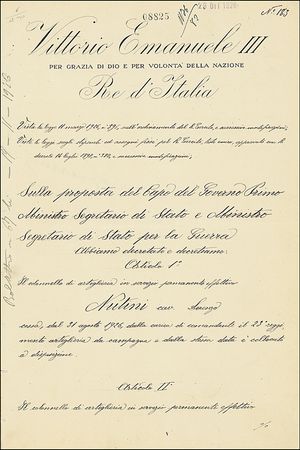 08825
20 Ott 1926
N.° 183
Vittorio Emanuele III
PER GRAZIA DI DIO E PER VOLONTÀ DELLA NAZIONE
Re d'Italia
Vista la legge 11 marzo 1926, n° 396, sull'ordinamento del R. Esercito, e successive modificazioni;
Vista la legge sugli stipendi ed assegni fissi pel R. Esercito, testo unico, approvato con R.
decreto 14 luglio 1898, n° 380, e successive modificazioni;
Sulla proposta del Capo del Governo Primo
Ministro Segretario di Stato e Ministro
Segretario di Stato per la Guerra
Abbiamo decretato e decretiamo:
Articolo 1°
Il colonnello di artiglieria in servizio permanente effettivo
Nutini cav.
cessa, dal 31 agosto 1926, dalla carica di comandante il 23° reggi-
mento artiglieria da campagna e dalla stessa data è collocato
a disposizione.
Articolo II°
Il colonnello di artiglieria in servizio permanente effettivo